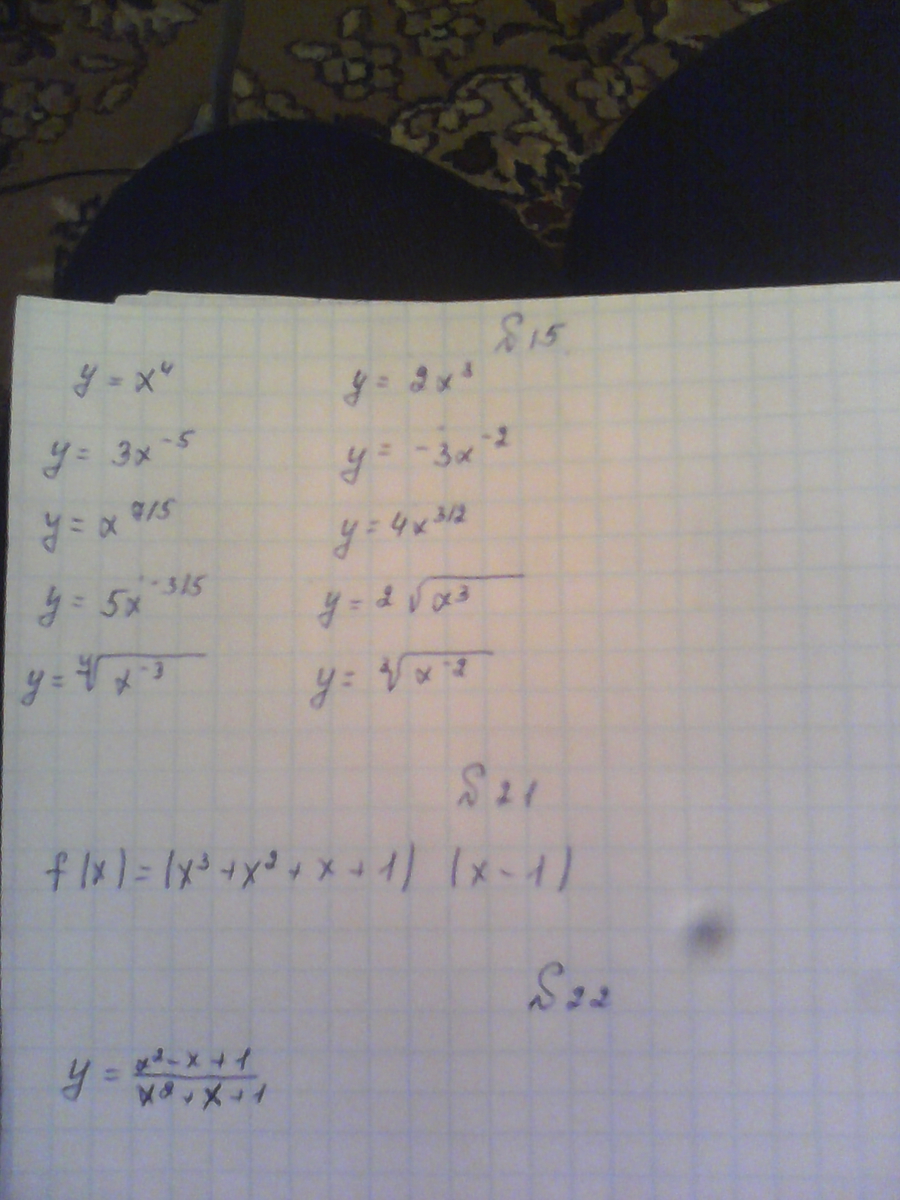 № 15
y = x⁴ y = 2x³
y = 3x⁻⁵ y = -3x⁻²
y = x^7/5 y = 4x^3/2
y = 5x^-3/5 y = 2 √x³
y = ⁴√x⁻³ y = ³√x⁻²
№ 21
f(x) = (x³ + x² + x + 1) (x - 1)
№ 22
y = (x² - x + 1)/(x² + x + 1)